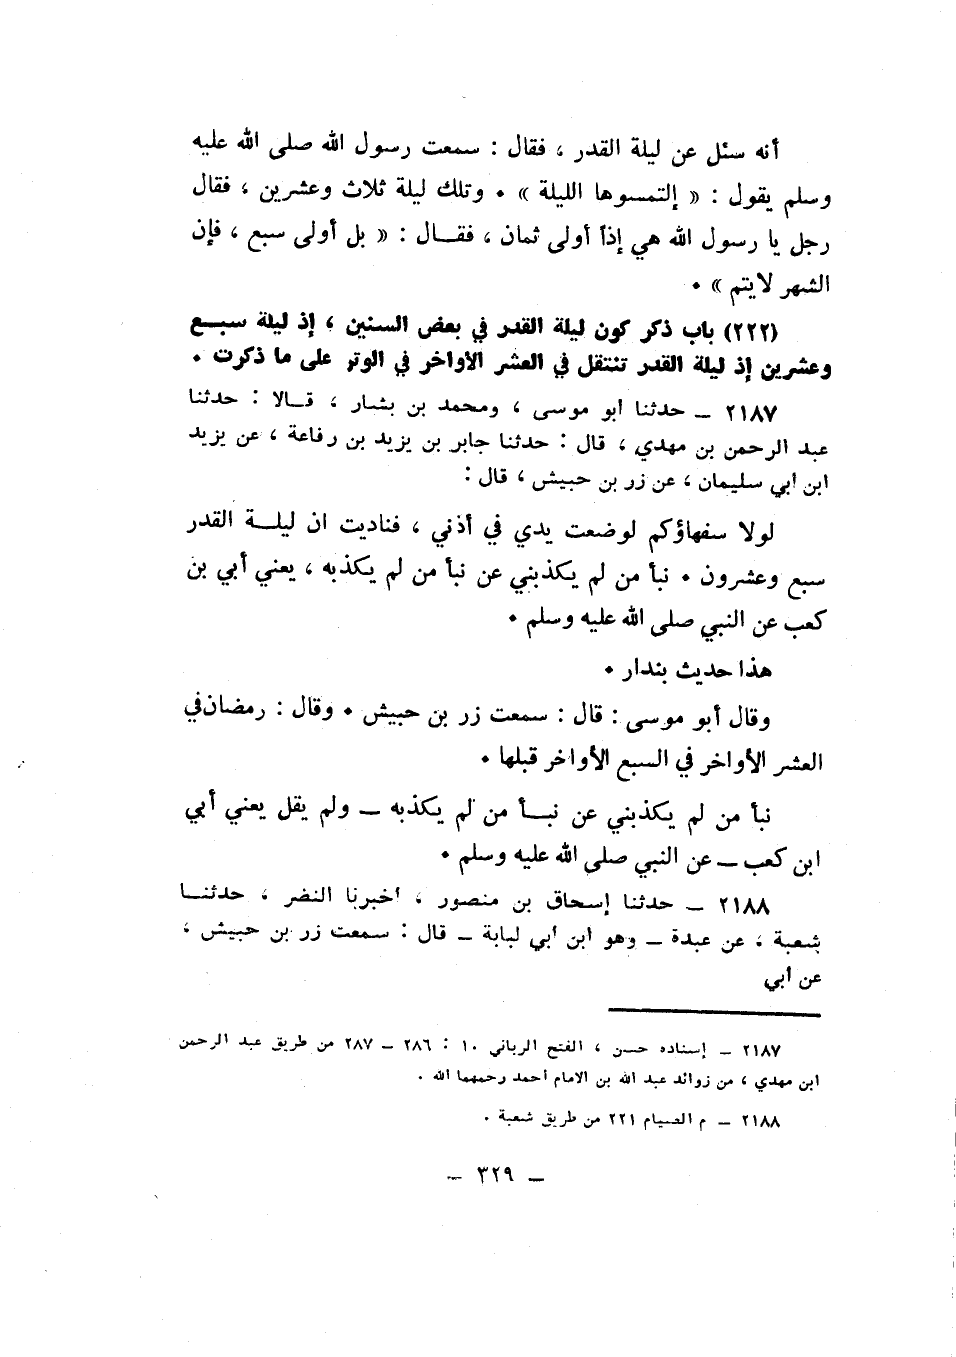 أنه سئل عن ليلة القدر ، فقال : سمعت رسول الله صلى الله عليه
وسلم يقول : « إلتمسوها الليلة » . وتلك ليلة ثلاث وعشرين ، فقال
رجل يا رسول الله هي إذاً أولى ثمان ، فقــال : « بل أولى سبع ، فإن
الشهر لايتم » .
(٢٢٢) باب ذكر كون ليلة القدر في بعض السنين ، إذ ليلة سبــع
وعشرين إذ ليلة القدر تنتقل في العشر الأواخر في الوتر على ما ذكرت .
٢١٨٧ – حدثنا أبو موسى ، ومحمد بن بشار ، قــالا : حدثنا
عبد الرحمن بن مهدي ، قال : حدثنا جابر بن يزيد بن رفاعة ، عن يزيد
ابن أبي سليمان ، عن زر بن حبيش ، قال :
لولا سفهاؤكم لوضعت يدي في أذني ، فناديت ان ليلــة القدر
سبع وعشرون . نبأ من لم يكذبني عن نبأ من لم يكذبه ، يعني أبي بن
كعب عن النبي صلى الله عليه وسلم .
هذا حديث بندار .
وقال أبو موسى : قال : سمعت زر بن حبيش . وقال : رمضان في
العشر الأواخر في السبع الأواخر قبلها .
نبأ من لم يكذبني عن نبــأ من لم يكذبه – ولم يقل يعني أبي
ابن كعب – عن النبي صلى الله عليه وسلم .
٢١٨٨ – حدثنا إسحاق بن منصور ، أخبرنا النضر ، حدثنــا
شعبة ، عن عبدة – وهو ابن أبي لبابة – قال : سمعت زر بن حبيش ،
عن أبي
٢١٨٧ – إسناده حسن ، الفتح الرباني ١٠ : ٢٨٦ – ٢٨٧ من طريق عبد الرحمن
ابن مهدي ، من زوائد عبد الله بن الامام أحمد رحمهما الله .
٢١٨٨ – م الصيام ٢٢١ من طريق شعبة .
– ٣٢٩ –